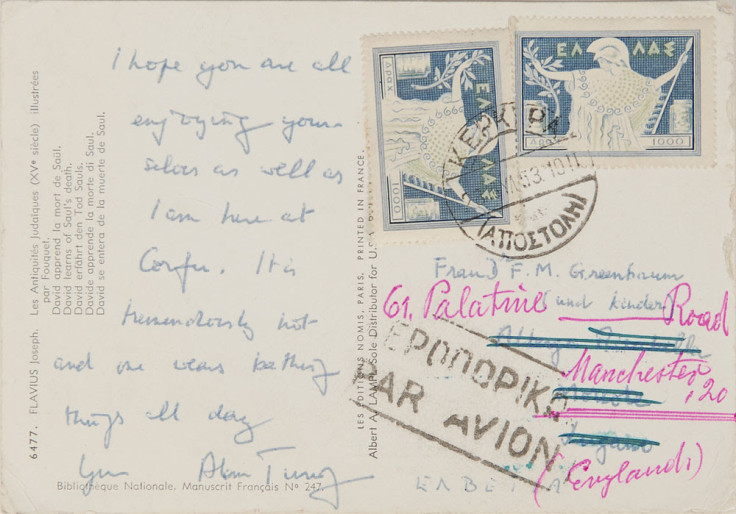 I hope you are all
enjoying your-
selves as well as
I am here at
Corfu. It is
tremendously hot
and one wears bathing
things all day
Yours Alan Turing
6477. FLAVIUS Joseph. Les Antiquités Judaïques (XVe siècle) illustrées
par Fouquet.
David apprend la mort de Saül.
David learns of Saul's death.
David erfährt den Tod Sauls.
Davide apprende la morte di Saul.
David se entera de la muerte de Saul.
Bibliothèque Nationale. Manuscrit Français No 247.
LES ÉDITIONS NOMIS, PARIS. PRINTED IN FRANCE.
Albert A. LAMPL Sole Distributor for U.S.A.
ΕΛΛΑΣ
ΔΡΑΧ.
1000
ΕΛΛΑΣ
ΔΡΑΧ.
1000
ΚΕΡΚΥΡΑ
53.10
(ΑΠΟΣΤΟΛΗ)
F. M. Greenbaum
und Kinder
61, Palatine Road
Manchester, 20
(England)
ΑΕΡΟΠΟΡΙΚΩΣ
PAR AVION